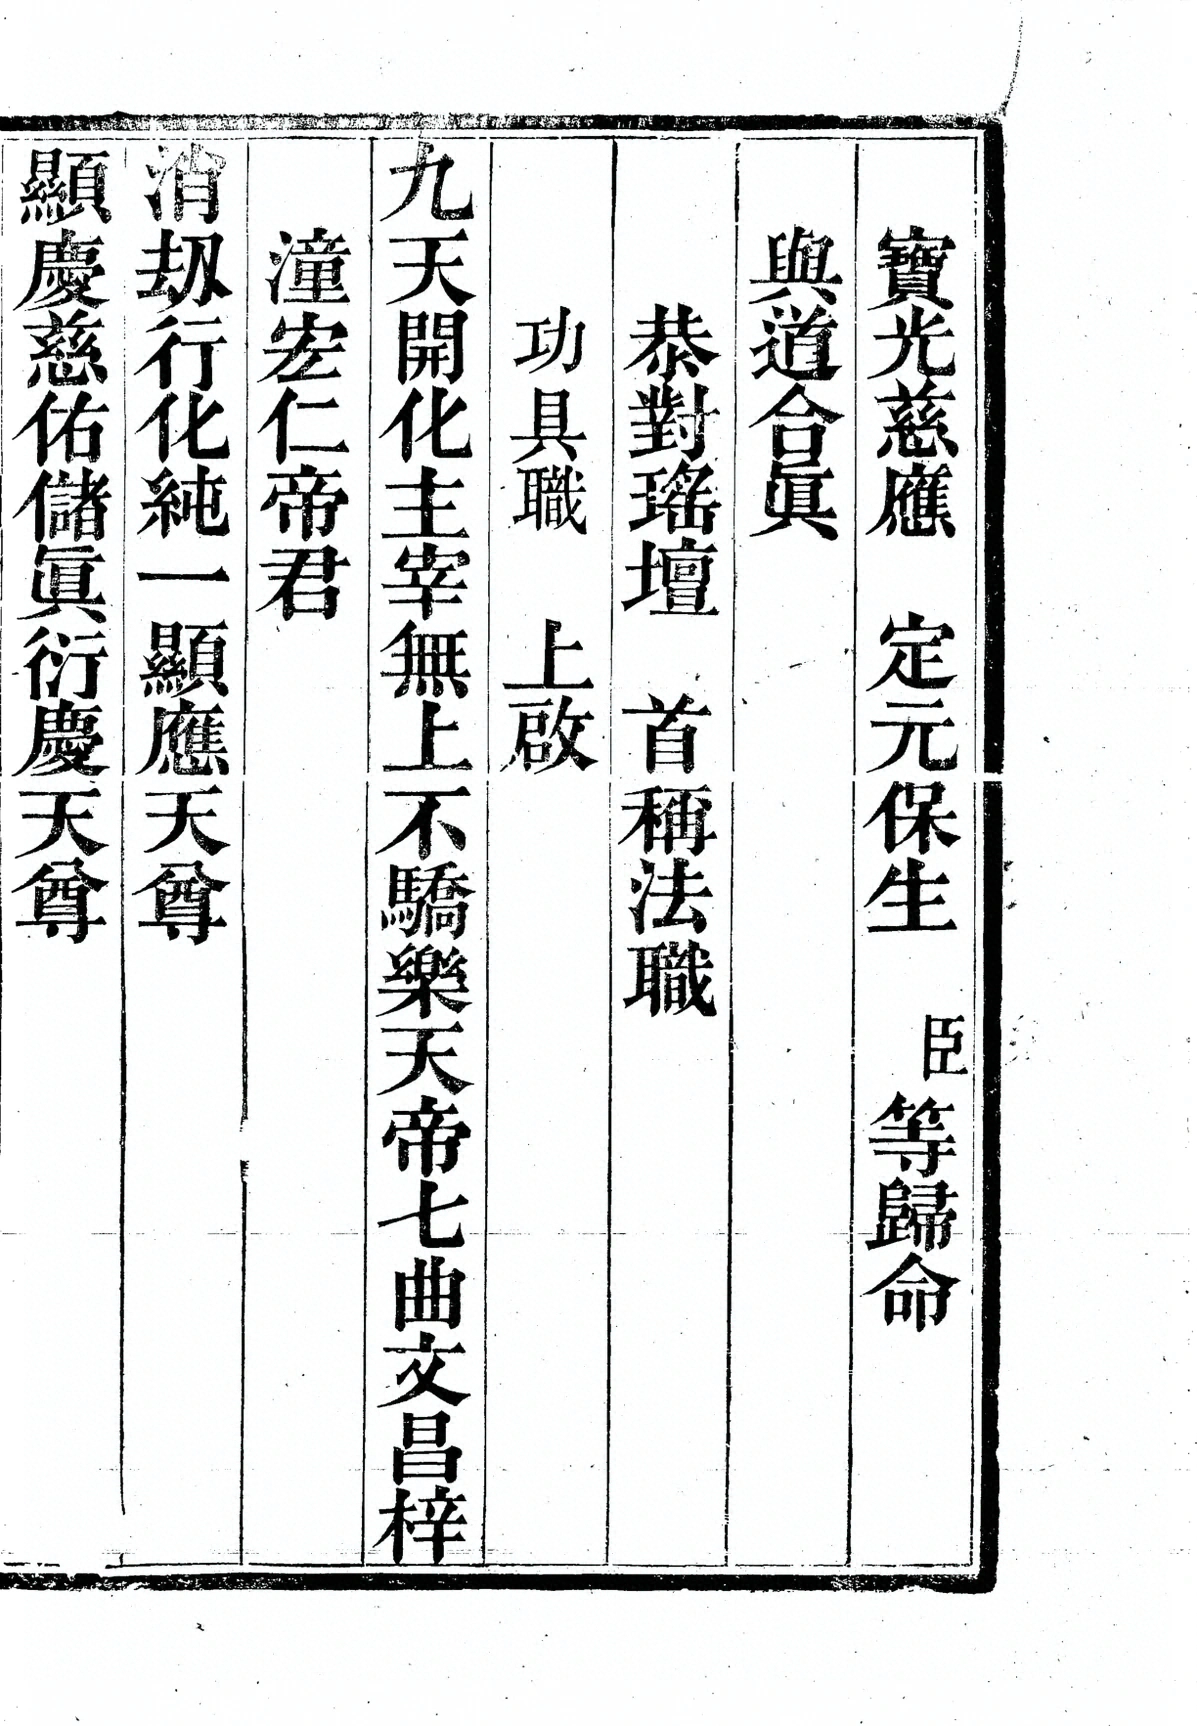 寶光慈應　定元保生　臣等歸命
與道合眞
恭對瑤壇　首稱法職
功具職　上啟
九天開化主宰無上不驕樂天帝七曲文昌梓
潼宏仁帝君
消刼行化純一顯應天尊
顯慶慈佑儲眞衍慶天尊